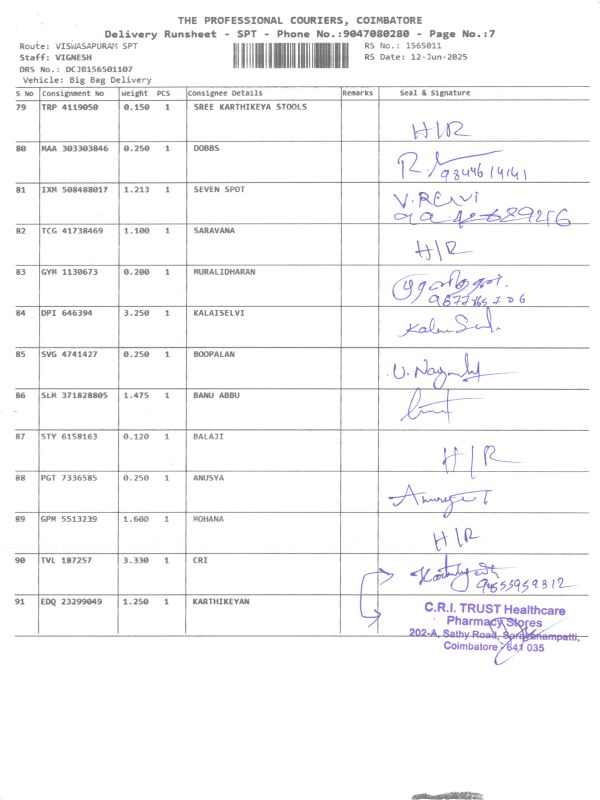 THE PROFESSIONAL COURIERS, COIMBATORE
Delivery Runsheet - SPT - Phone No.:9047080280 - Page No.:7
Route: VISWASAPURAM SPT
Staff: VIGNESH
DRS No.: DCJB156501107
Vehicle: Big Bag Delivery
RS No.: 1565011
RS Date: 12-Jun-2025
S No Consignment No Weight PCS Consignee Details Remarks Seal & Signature
79 TRP 4119050 0.150 1 SREE KARTHIKEYA STOOLS
H/R
80 MAA 303303846 0.250 1 DOBBS
81 IXM 508488017 1.213 1 SEVEN SPOT
82 TCG 41738469 1.100 1 SARAVANA
H/R
83 GYM 1130673 0.200 1 MURALIDHARAN
84 DPI 646394 3.250 1 KALAISELVI
85 SVG 4741427 0.250 1 BOOPALAN
86 SLM 371828805 1.475 1 BANU ABBU
87 STY 6158163 0.120 1 BALAJI
H/R
88 PGT 7336585 0.250 1 ANUSYA
89 GPM 5513239 1.600 1 MOHANA
H/R
90 TVL 187257 3.330 1 CRI
91 EDQ 23299049 1.250 1 KARTHIKEYAN
C.R.I. TRUST Healthcare
Pharmacy Stores
202-A, Sathy Road, Saravanampatti,
Coimbatore - 641 035